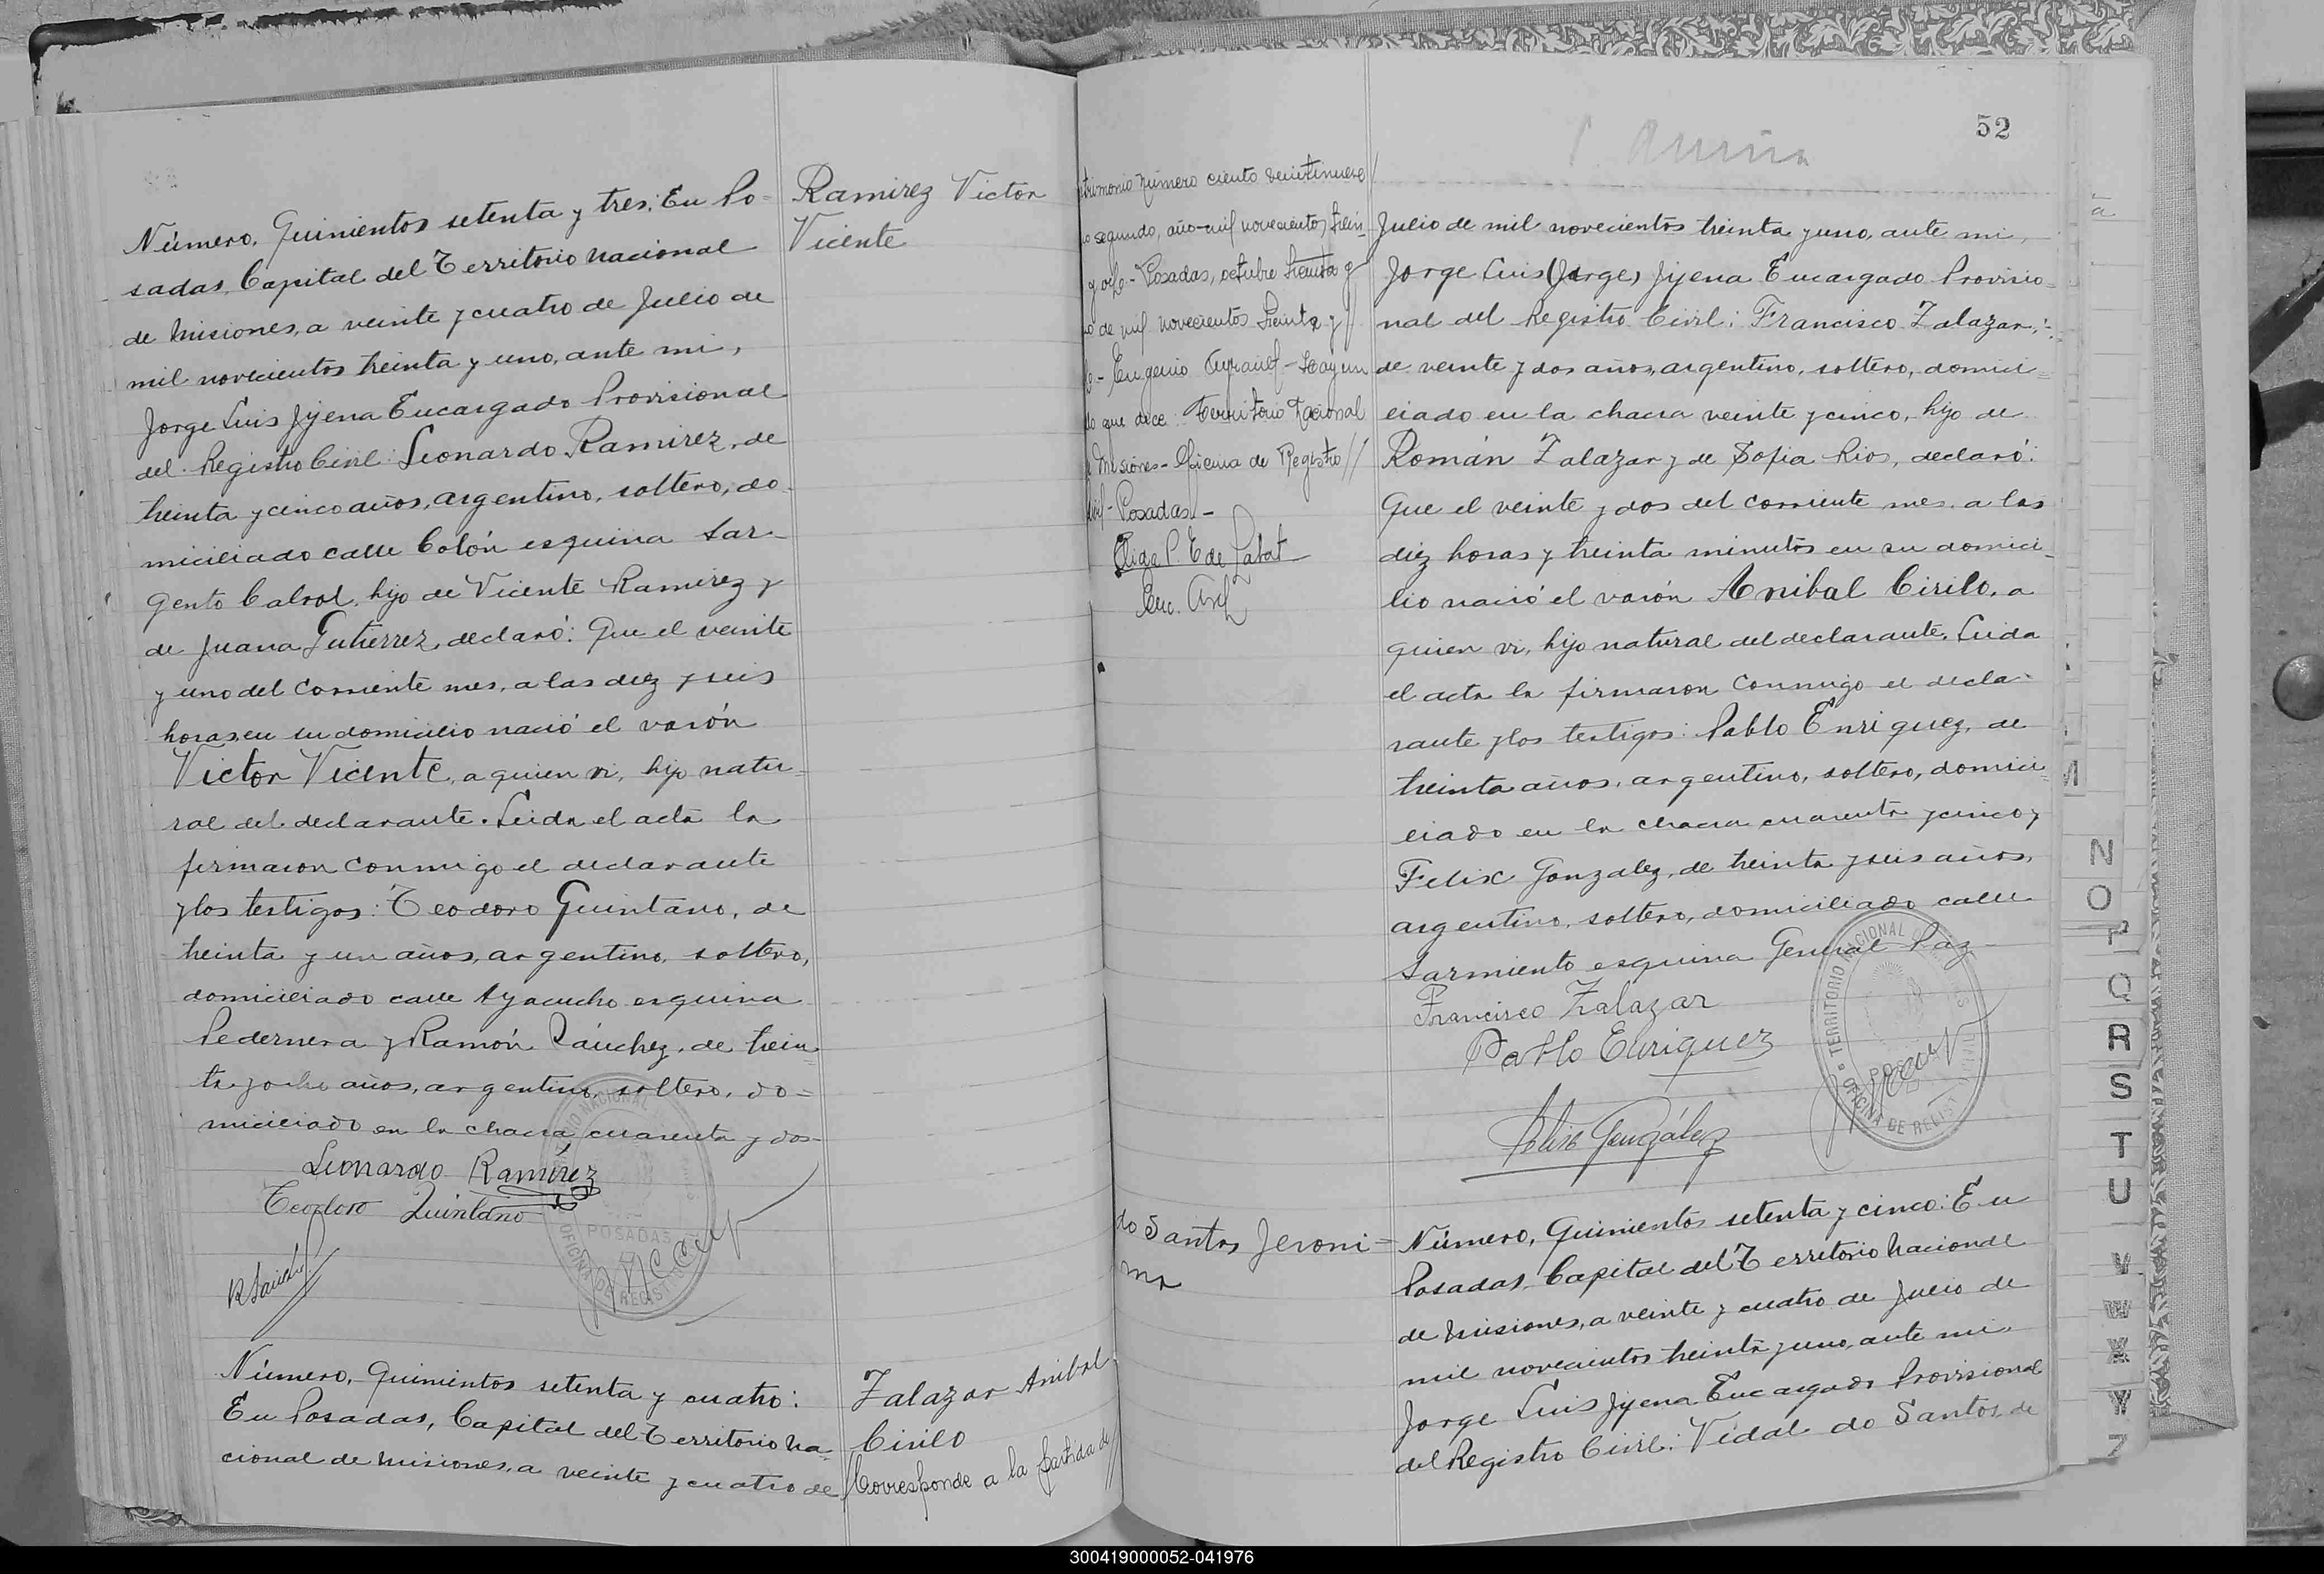 Número, Quinientos setenta y tres: En Po=
sadas, Capital del Territorio nacional
de Misiones, a veinte y cuatro de Julio de
mil novecientos treinta y uno, ante mi,
Jorge Luis Jijena Encargado Provisional
del Registro Civil: Leonardo Ramirez, de
treinta y cinco años, argentino, soltero, do-
miciliado calle Colón esquina Sar-
gento Cabral, hijo de Vicente Ramirez y
de Juana Gutierrez, declaró: Que el veinte
y uno del corriente mes, a las diez y seis
horas, en su domicilio nació el varón
Victor Vicente, a quien vi, hijo natu-
ral del declarante. Leida el acta la
firmaron conmigo el declarante
y los testigos: Teodoro Quintano, de
treinta y un años, argentino, soltero,
domiciliado calle Ayacucho esquina
Pedernera y Ramón Sánchez, de trein
ta y ocho años, argentino, soltero, do=
miciliado en la chacra cuarenta y dos-
Leonardo Ramirez
Teodoro Quintano
R Sanch
TERRITORIO NACIONAL
POSADAS
OFICINA DE REGIST
Número, Quinientos setenta y cuatro:
En Posadas, Capital del Territorio na-
cional de Misiones, a veinte y cuatro de
Ramirez Victor
Vicente
Zalazar Anibal
Cirilo
Corresponde a la partida de
trimonio número ciento veintinueve
segundo, año mil novecientos trein-
y - Posadas, octubre treinta y
de mil novecientos treinta y
- Eugenio - Hay un
que dice: Territorio Nacional
Misiones - Oficina de Registro
- Posadas -
52
Julio de mil novecientos treinta y uno, ante mi,
Jorge Luis (Jorge) Jijena Encargado Provisio=
nal del Registro Civil: Francisco Zalazar,
de veinte y dos años, argentino, soltero, domici=
liado en la chacra veinte y cinco, hijo de
Román Zalazar y de Sofia Rios, declaró:
Que el veinte y dos del corriente mes, a las
diez horas y treinta minutos en su domici-
lio nació el varón Anibal Cirilo, a
quien vi, hijo natural del declarante. Leida
el acta la firmaron conmigo el decla-
rante y los testigos: Pablo Enriquez, de
treinta años, argentino, soltero, domici=
liado en la chacra cuarenta y cinco y
Felix Gonzalez, de treinta y seis años,
argentino, soltero, domiciliado calle
Sarmiento esquina General Paz-
Francisco Zalazar
Pablo Enriquez
Felix González
TERRITORIO NACIONAL
OFICINA DE REGIST
do Santos Jeroni=
ma
Número, Quinientos setenta y cinco: En
Posadas, Capital del Territorio nacional
de Misiones, a veinte y cuatro de Julio de
mil novecientos treinta y uno, ante mi,
Jorge Luis Jijena Encargado Provisional
del Registro Civil: Vidal do Santos, de
M
N
O
P
Q
R
S
T
U
V
W
X
Y
Z
300419000052-041976